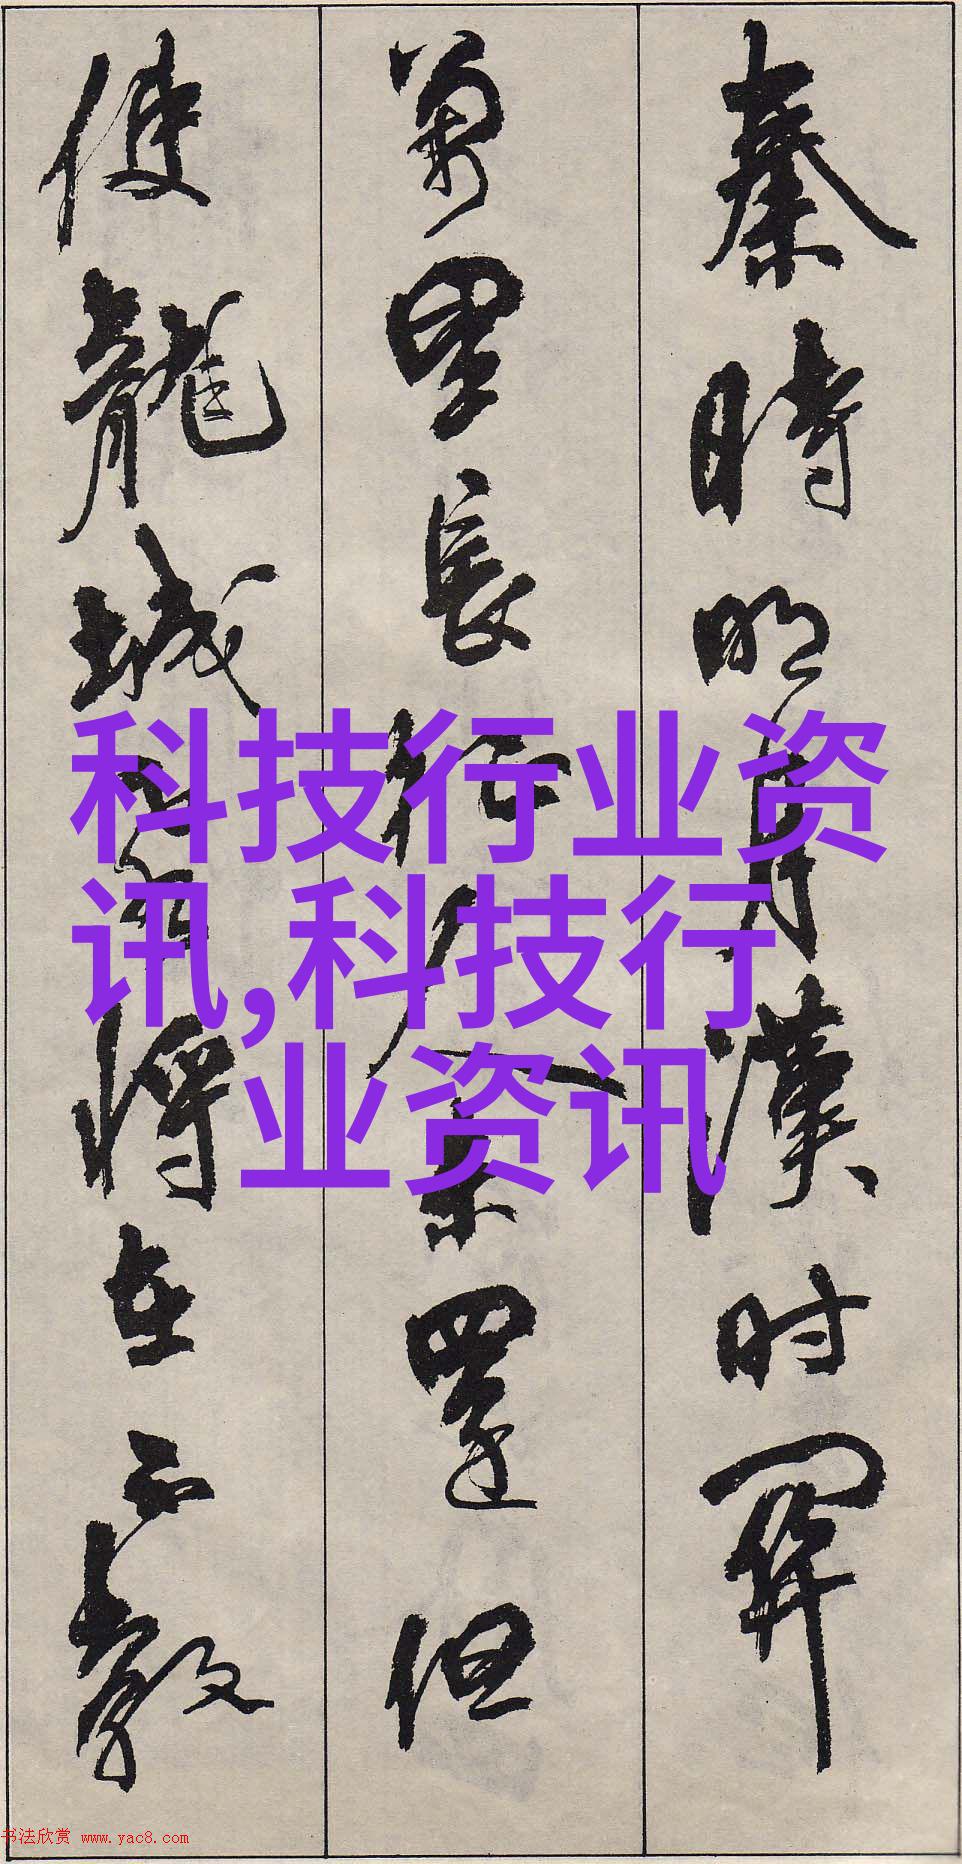 秦時明月漢时關
萬里長征人未還但
使龍城飛將在不教
科技行业资
讯,科技行
业资讯
书法欣赏 www.yac8.com